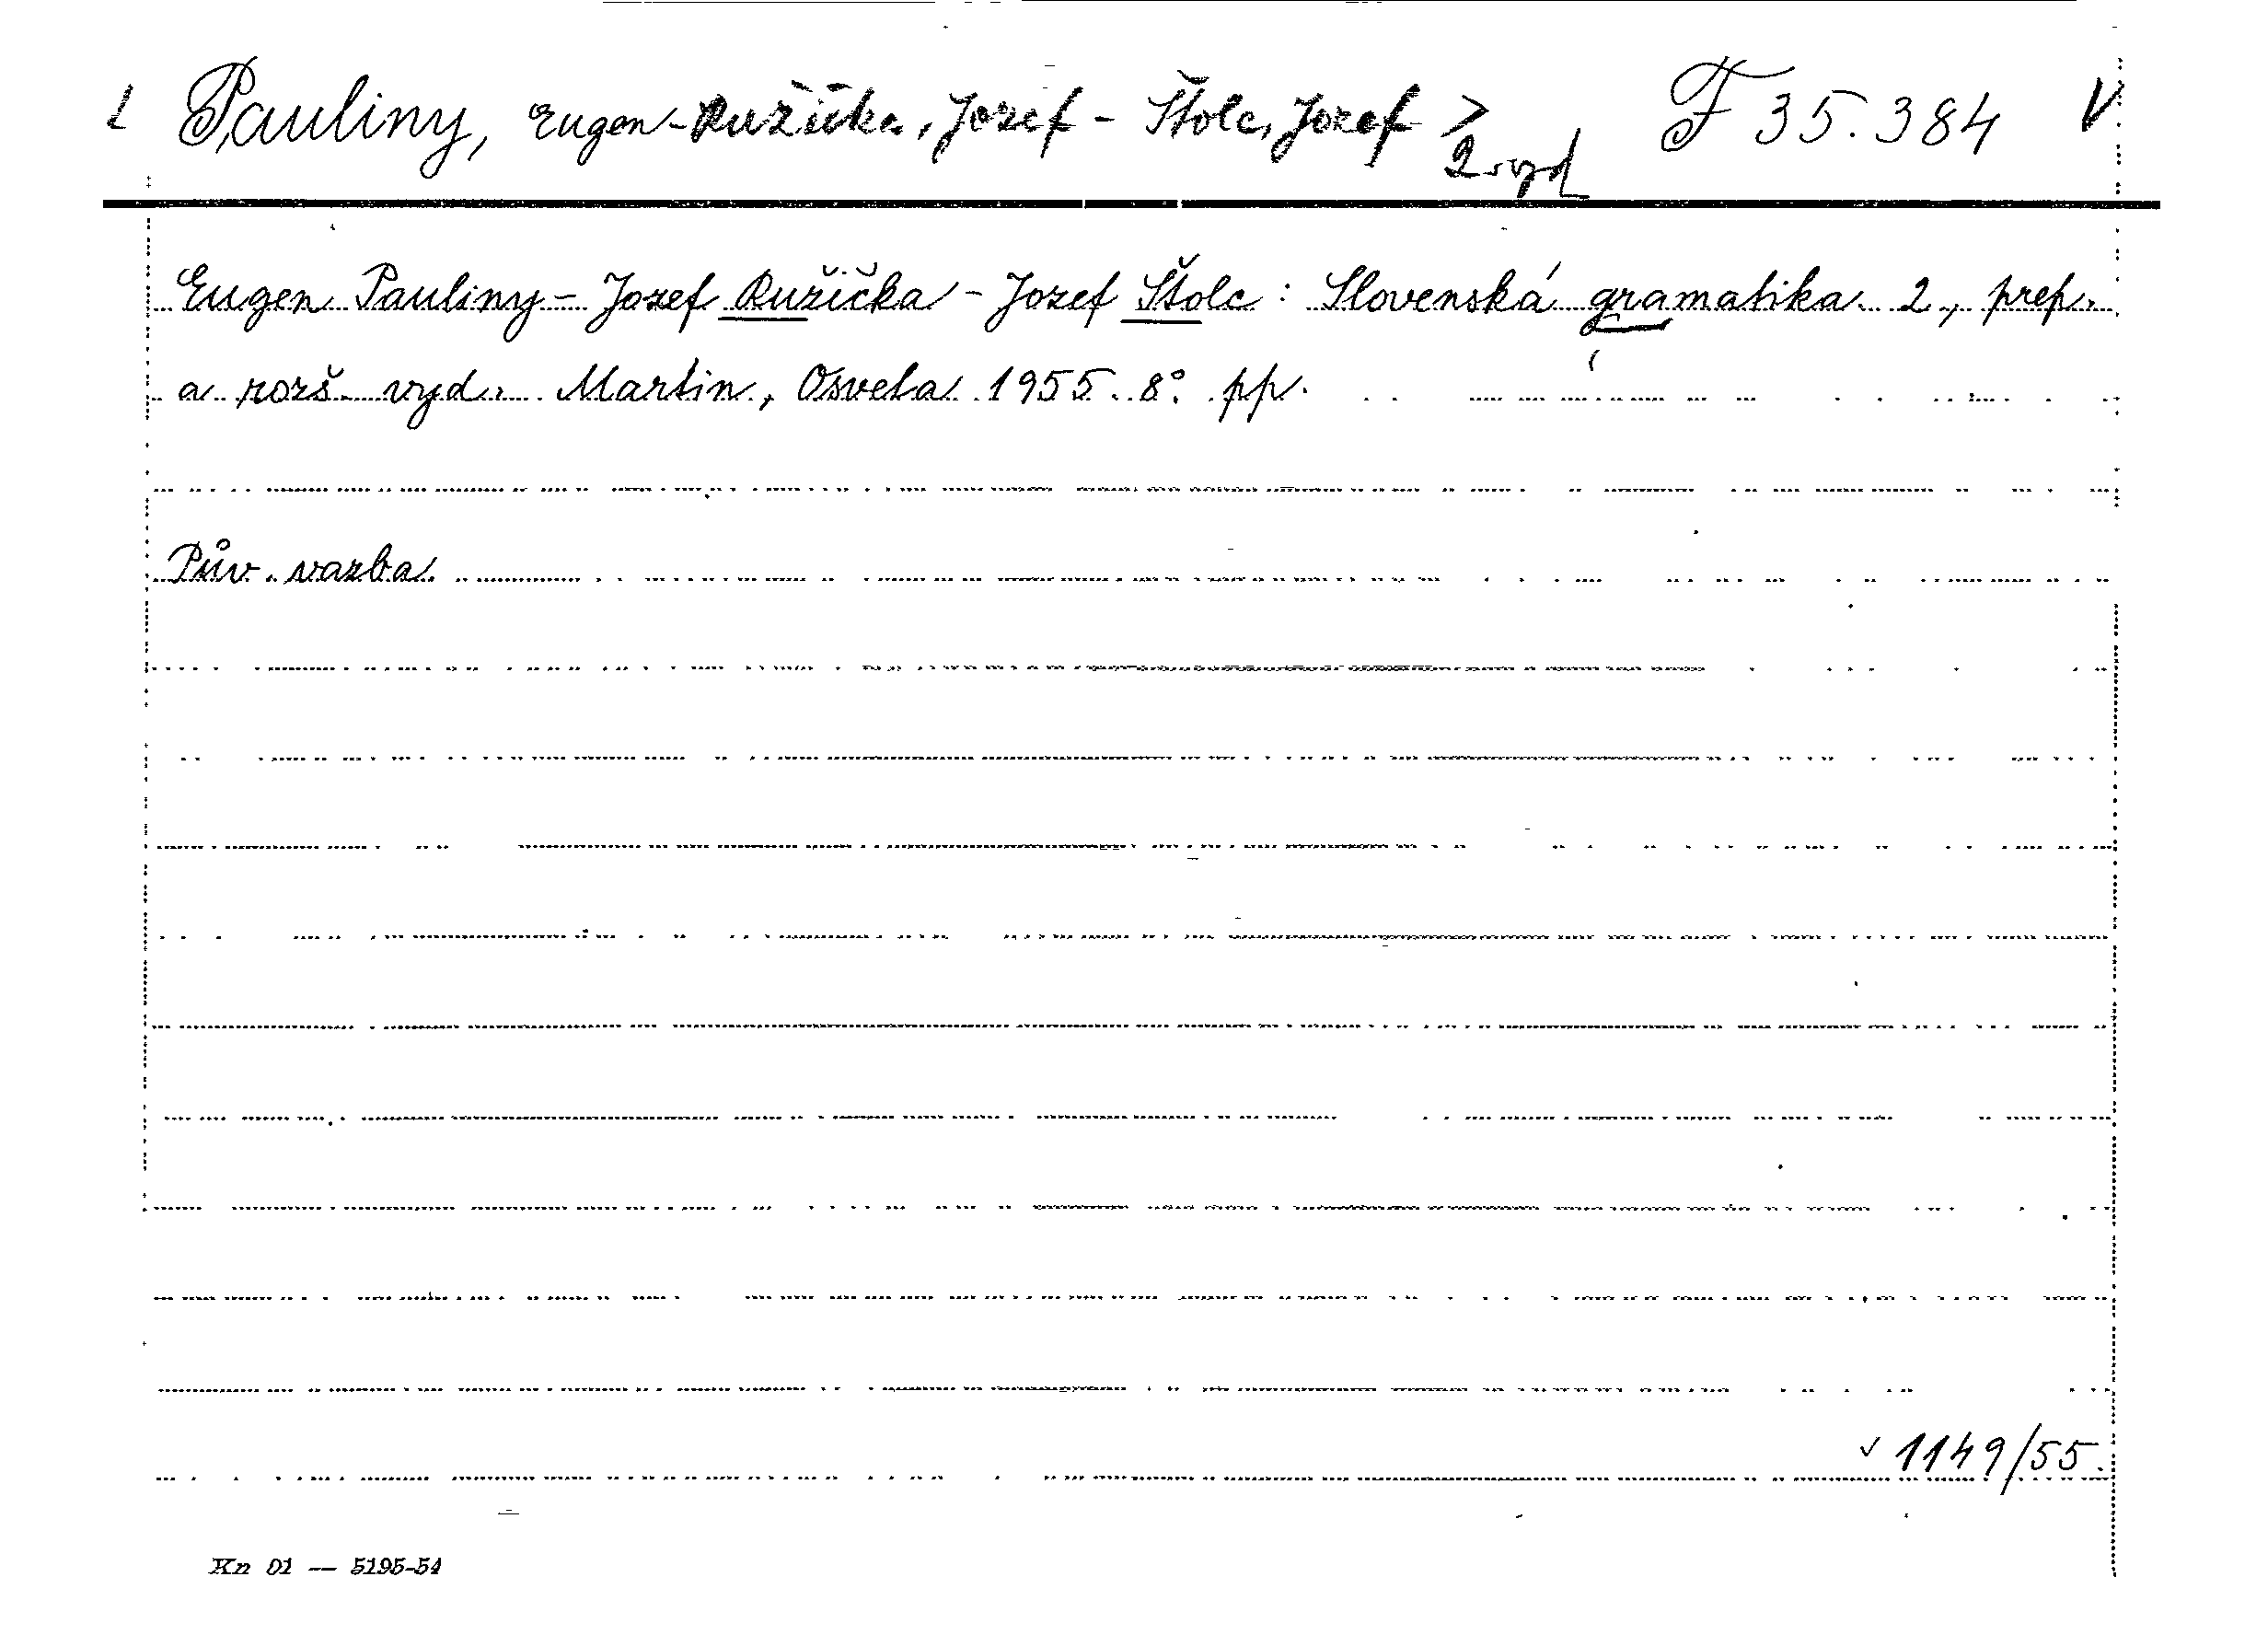 Pauliny, Eugen - Ružička, Jozef - Štolc, Jozef > F 35.384 V
2. vyd
Eugen Pauliny - Jozef Ružička - Jozef Štolc : Slovenská gramatika. 2., prep.
a rozš. vyd. Martin, Osveta 1955. 8°. pp.
Pův. vazba.
✓ 1149/55.
Kn 01 — 5195-54